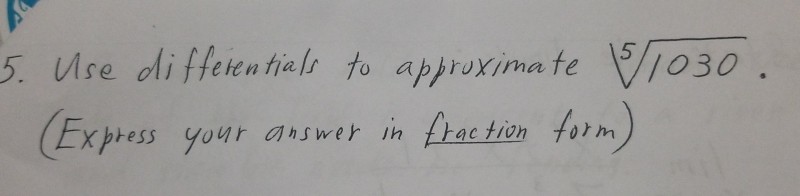 5. Use differentials to approximate ⁵√1030 .
(Express your answer in fraction form)